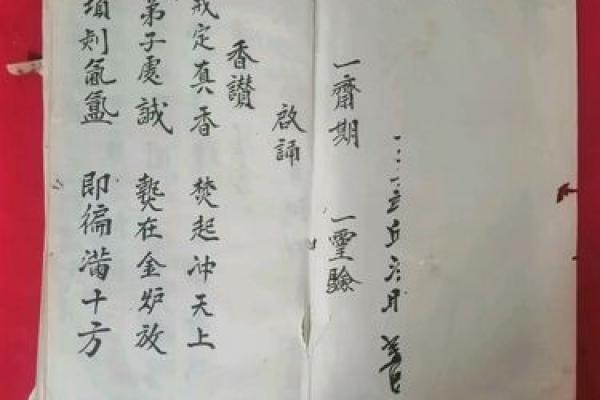 一齋期 一靈驗
啟誦
香讚
戒定真香 焚起冲天上
弟子處誠 爇在金炉放
頃刻氤氳 即徧滿十方